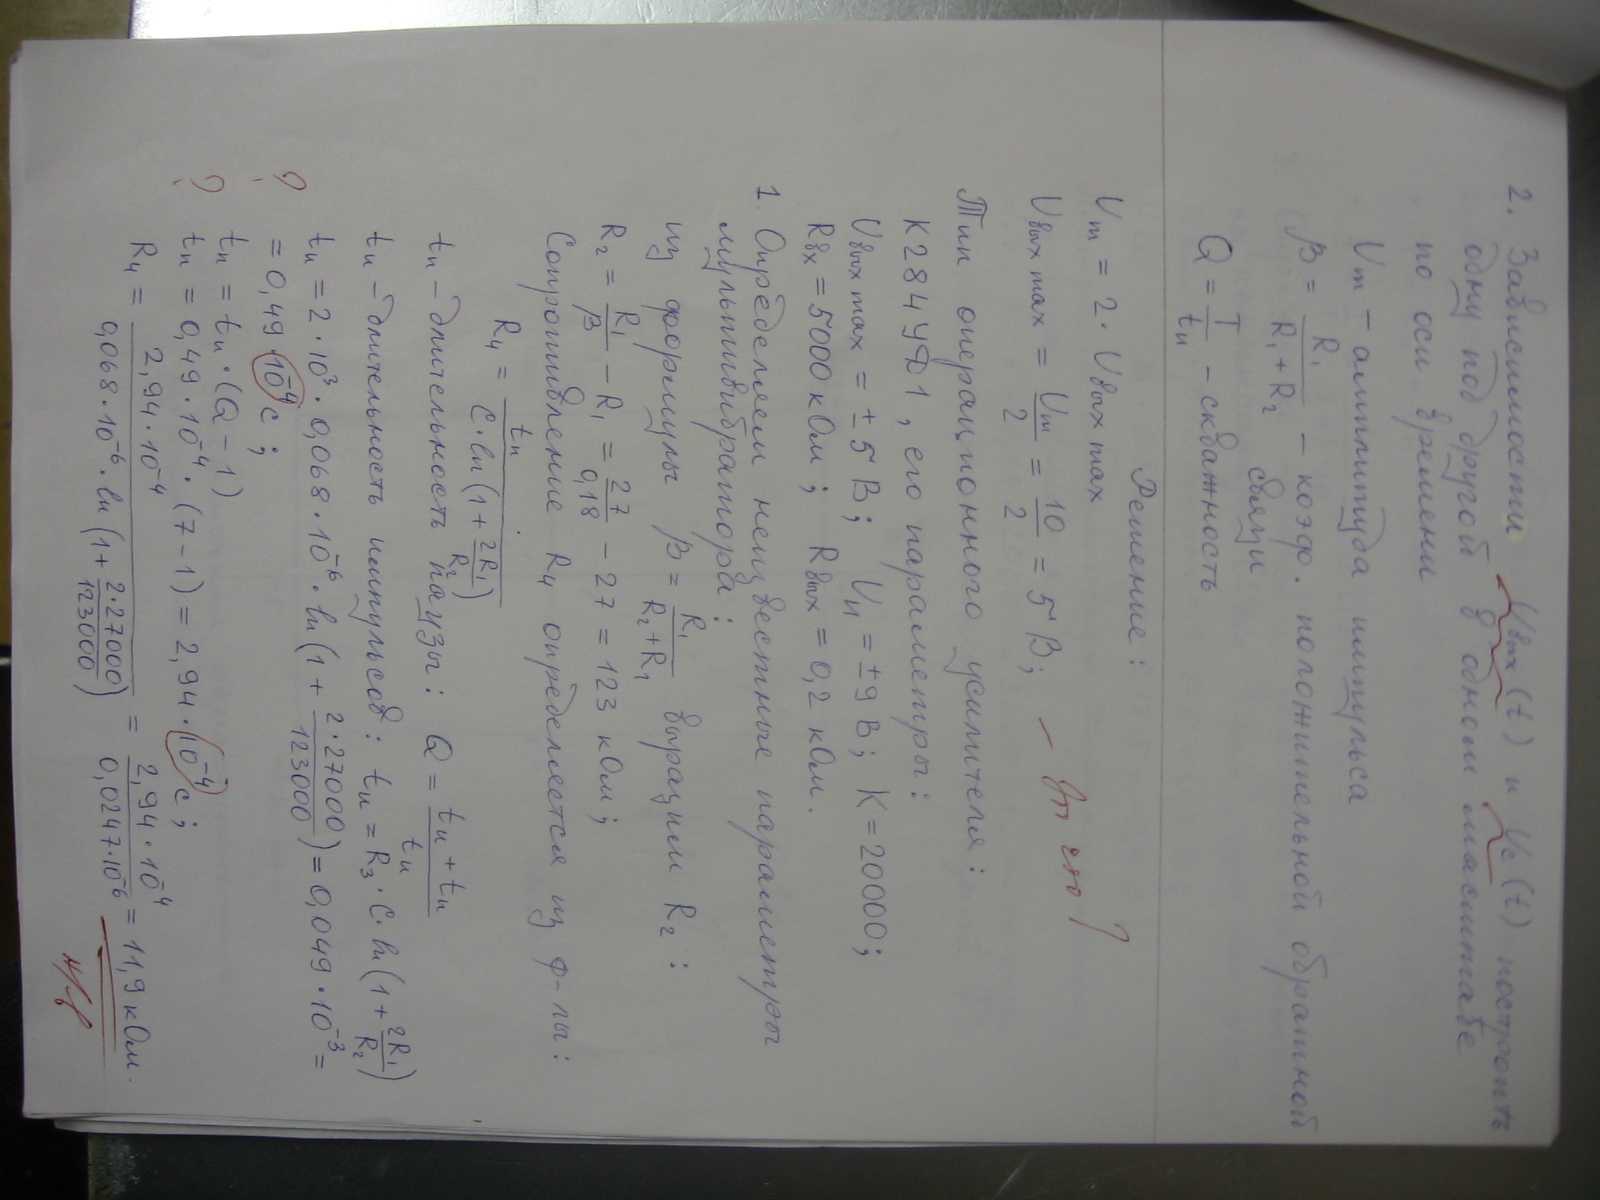 2. Зависимости Uвых(t) и Uc(t) построить
одну под другой в одном масштабе
по оси времени
Um – амплитуда импульса
β = R₁/(R₁+R₂) – коэф. положительной обратной
связи
Q = T/tи – скважность
Решение:
Um = 2·Uвых max
Uвых max = Um/2 = 10/2 = 5 В; –
Тип операционного усилителя:
К284УД1, его параметры:
Uвых max = ±5 В; Uп = ±9 В; K = 20000;
Rвх = 5000 кОм; Rвых = 0,2 кОм.
1. Определяем неизвестные параметры
мультивибратора:
из формулы β = R₁/(R₂+R₁) выразим R₂:
R₂ = R₁/β – R₁ = 27/0,18 – 27 = 123 кОм;
Сопротивление R₄ определяется из ф-лы:
R₄ = tп/(C·ln(1+2R₁/R₂))
tп – длительность паузы: Q = (tи+tп)/tи
tи – длительность импульсов: tи = R₃·C·ln(1+2R₁/R₂)
tи = 2·10³·0,068·10⁻⁶·ln(1+2·27000/123000) = 0,049·10⁻³ =
? = 0,49·10⁻⁴ с;
tп = tи·(Q–1)
? tп = 0,49·10⁻⁴·(7–1) = 2,94·10⁻⁴ с;
R₄ = 2,94·10⁻⁴/(0,068·10⁻⁶·ln(1+2·27000/123000)) = 2,94·10⁻⁴/(0,0247·10⁻⁶) = 11,9 кОм.